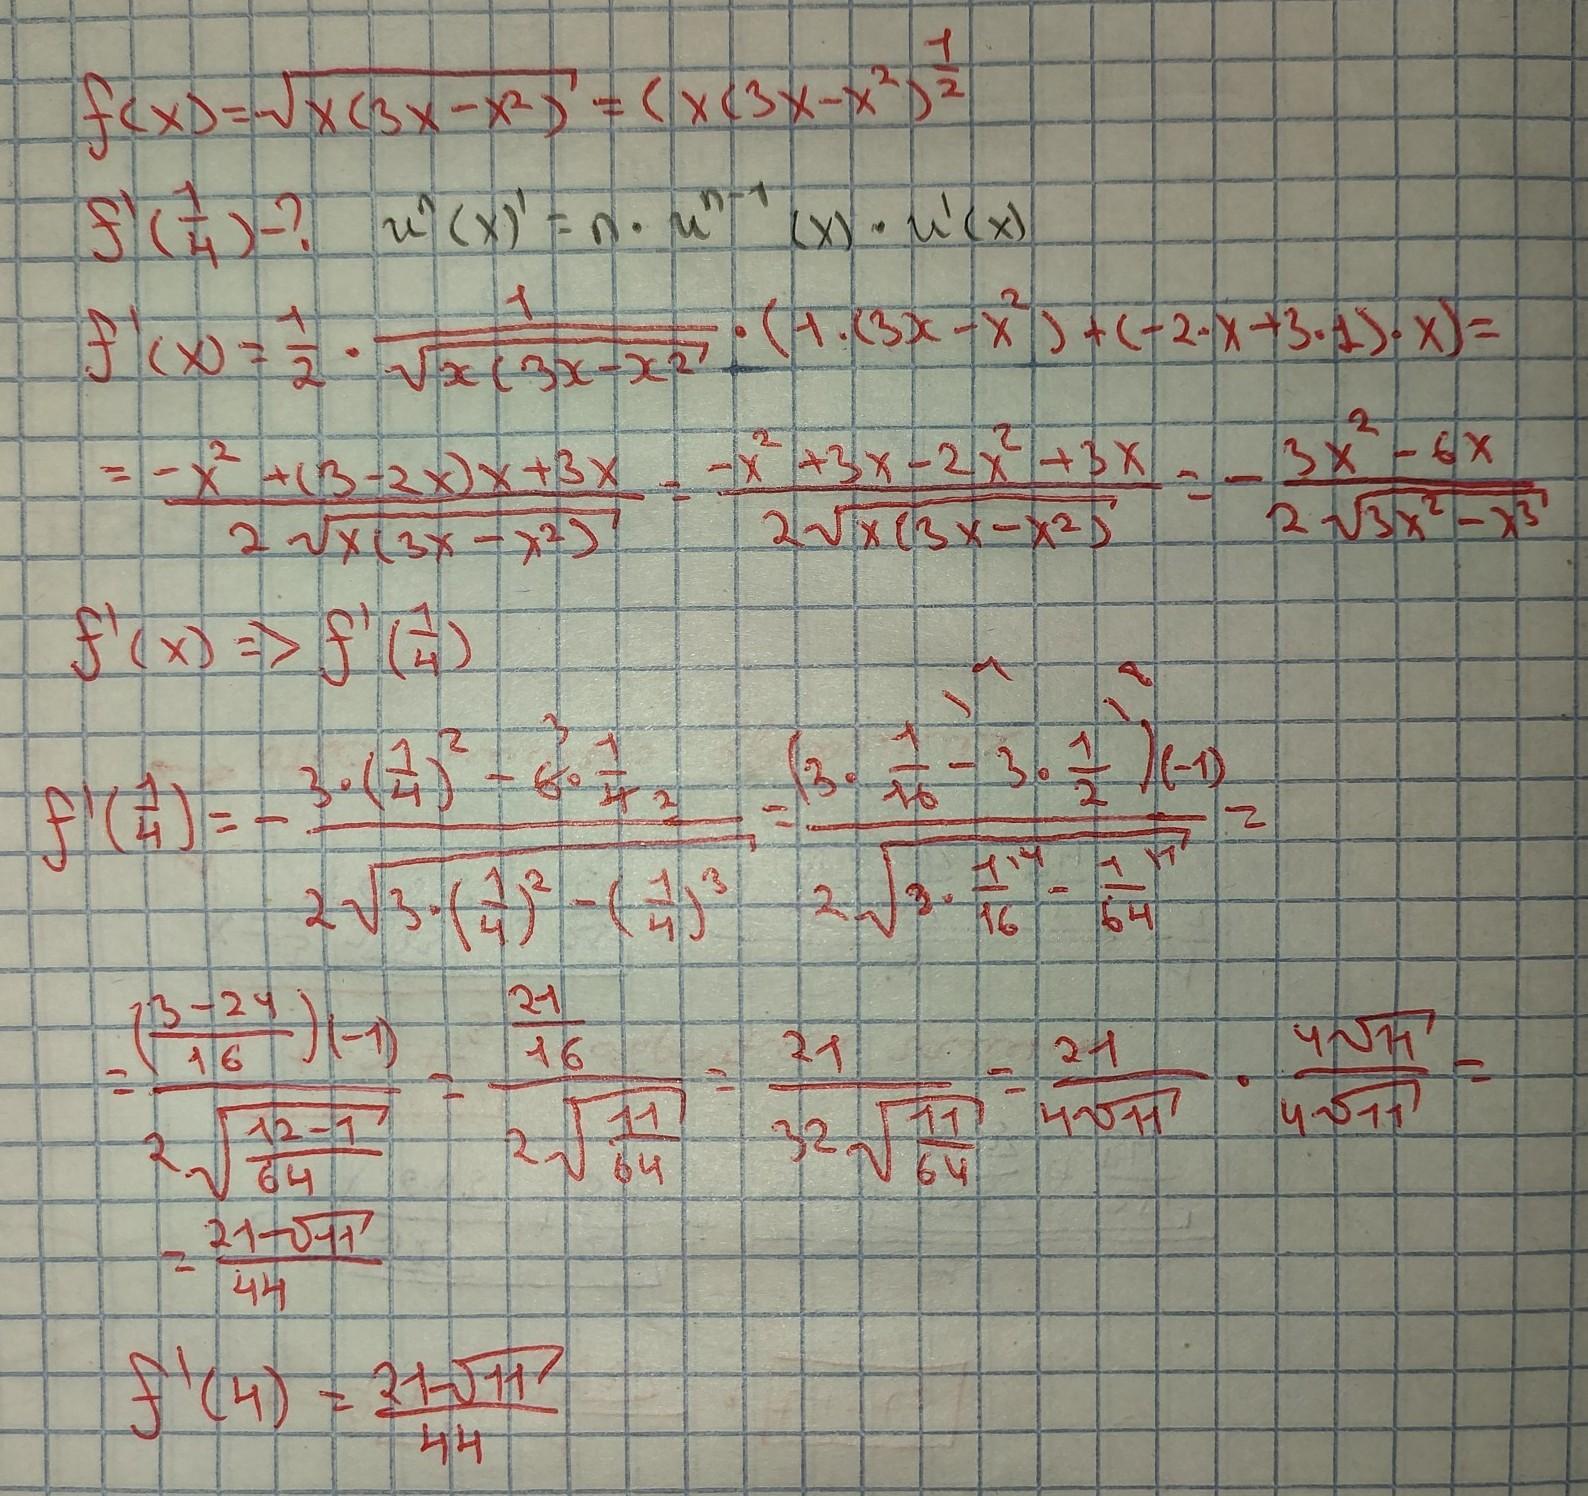 f(x)=√x(3x-x²) = (x(3x-x²)^1/2
f'(1/4)-? uⁿ(x)' = n·uⁿ⁻¹(x)·u'(x)
f'(x) = 1/2 · 1/√x(3x-x² · (1·(3x-x²)+(-2·x+3·1)·x)=
= -x²+(3-2x)x+3x/2√x(3x-x²) = -x²+3x-2x²+3x/2√x(3x-x²) = - 3x²-6x/2√3x²-x³
f'(x) => f'(1/4)
f'(1/4) = - 3·(1/4)²-6·1/4/2√3·(1/4)²-(1/4)³ = (3·1/16-3·1/2)(-1)/2√3·1/16-1/64 =
= (3-24/16)(-1)/2√12-1/64 = 21/16/2√11/64 = 21/32√11/64 = 21/4√11 · 4√11/4√11 =
= 21√11/44
f'(4) = 21√11/44